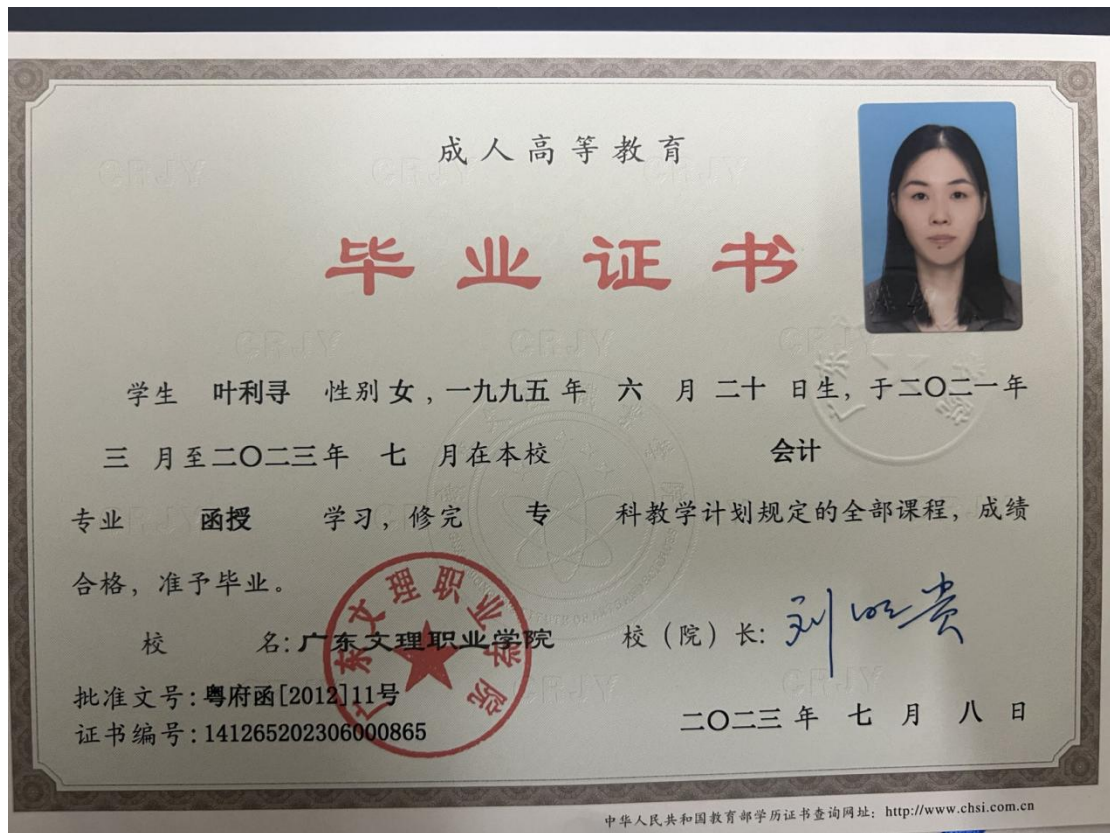 成人高等教育
毕业证书
学生 叶利寻 性别 女，一九九五 年 六 月 二十 日生，于二〇二一年
三 月至二〇二三年 七 月在本校 会计
专业 函授 学习，修完 专 科教学计划规定的全部课程，成绩
合格，准予毕业。
校 名：广东文理职业学院 校（院）长：
批准文号：粤府函[2012]11号
证书编号：141265202306000865
二〇二三 年 七 月 八 日
广东文理职业学院
CRJY
CRJY
CRJY
CRJY
CRJY
中华人民共和国教育部学历证书查询网址：http://www.chsi.com.cn